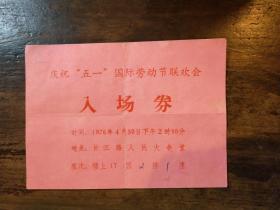 庆祝“五一”国际劳动节联欢会
入场券
时间：1976年4月30日下午2时30分
地点：长江路人民大会堂
席次：楼上17区2排1座